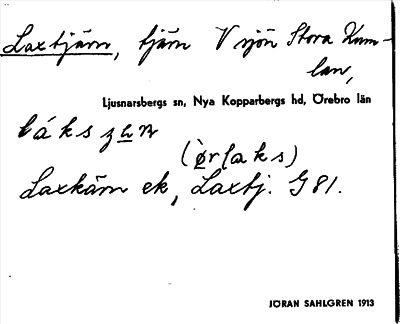 Laxtjärn, tjärn V sjön Stora Kum-
lan,
Ljusnarsbergs sn, Nya Kopparbergs hd, Örebro län
(ørlaks)
Laxkärn ek, Laxtj. G 81.
JÖRAN SAHLGREN 1913